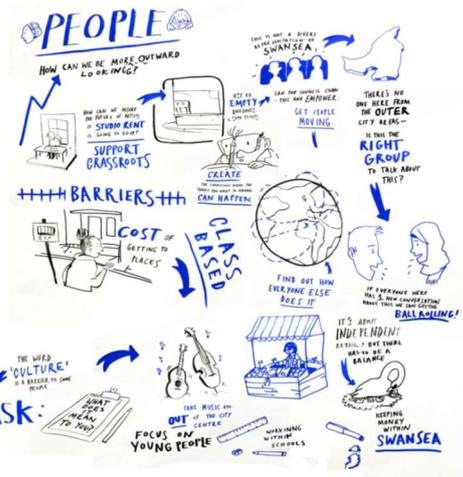 PEOPLE
HOW CAN WE BE MORE OUTWARD
LOOKINGG?
HOW CAN WE
THE FUTURE OF ARTISTS
IF STUDIO RENT
IS GOING TO
SUPPORT
GRASSROOTS
USE OF
EMPTY
BUILDINGS
CREATE
THE CONDITIONS
THINGS YOU WANT TO
CAN HAPPEN
THIS IS NOT A DIVERSE
REPRESENTATION OF
SWANSEA!
CAN THE COUNCIL
THIS AND EMPOWER
GET PEOPLE
MOVING
THERE'S NO
ONE HERE FROM
THE OUTER
CITY AREAS—
IS THIS THE
RIGHT
GROUP
TO TALK ABOUT
THIS?
BARRIERS
COST OF
GETTING TO
PLACES
CLASS
BASED
FIND OUT HOW
EVERYONE ELSE
DOES IT
IF EVERYONE HERE
HAS 1 NEW CONVERSATION
ABOUT THIS WE CAN GET THE
BALL ROLLING!
THE WORD
'CULTURE'
IS A BARRIER TO SOME
PEOPLE
SK:
WHAT
DOES IT
MEAN
TO YOU?
TAKE MUSIC
OUT OF THE CITY
CENTRE
FOCUS ON
YOUNG PEOPLE
WORKING
WITHIN
SCHOOLS
IT'S ABOUT
INDEPENDENT
RETAIL, BUT THERE
HAS TO BE A
BALANCE
KEEPING
MONEY
WITHIN
SWANSEA